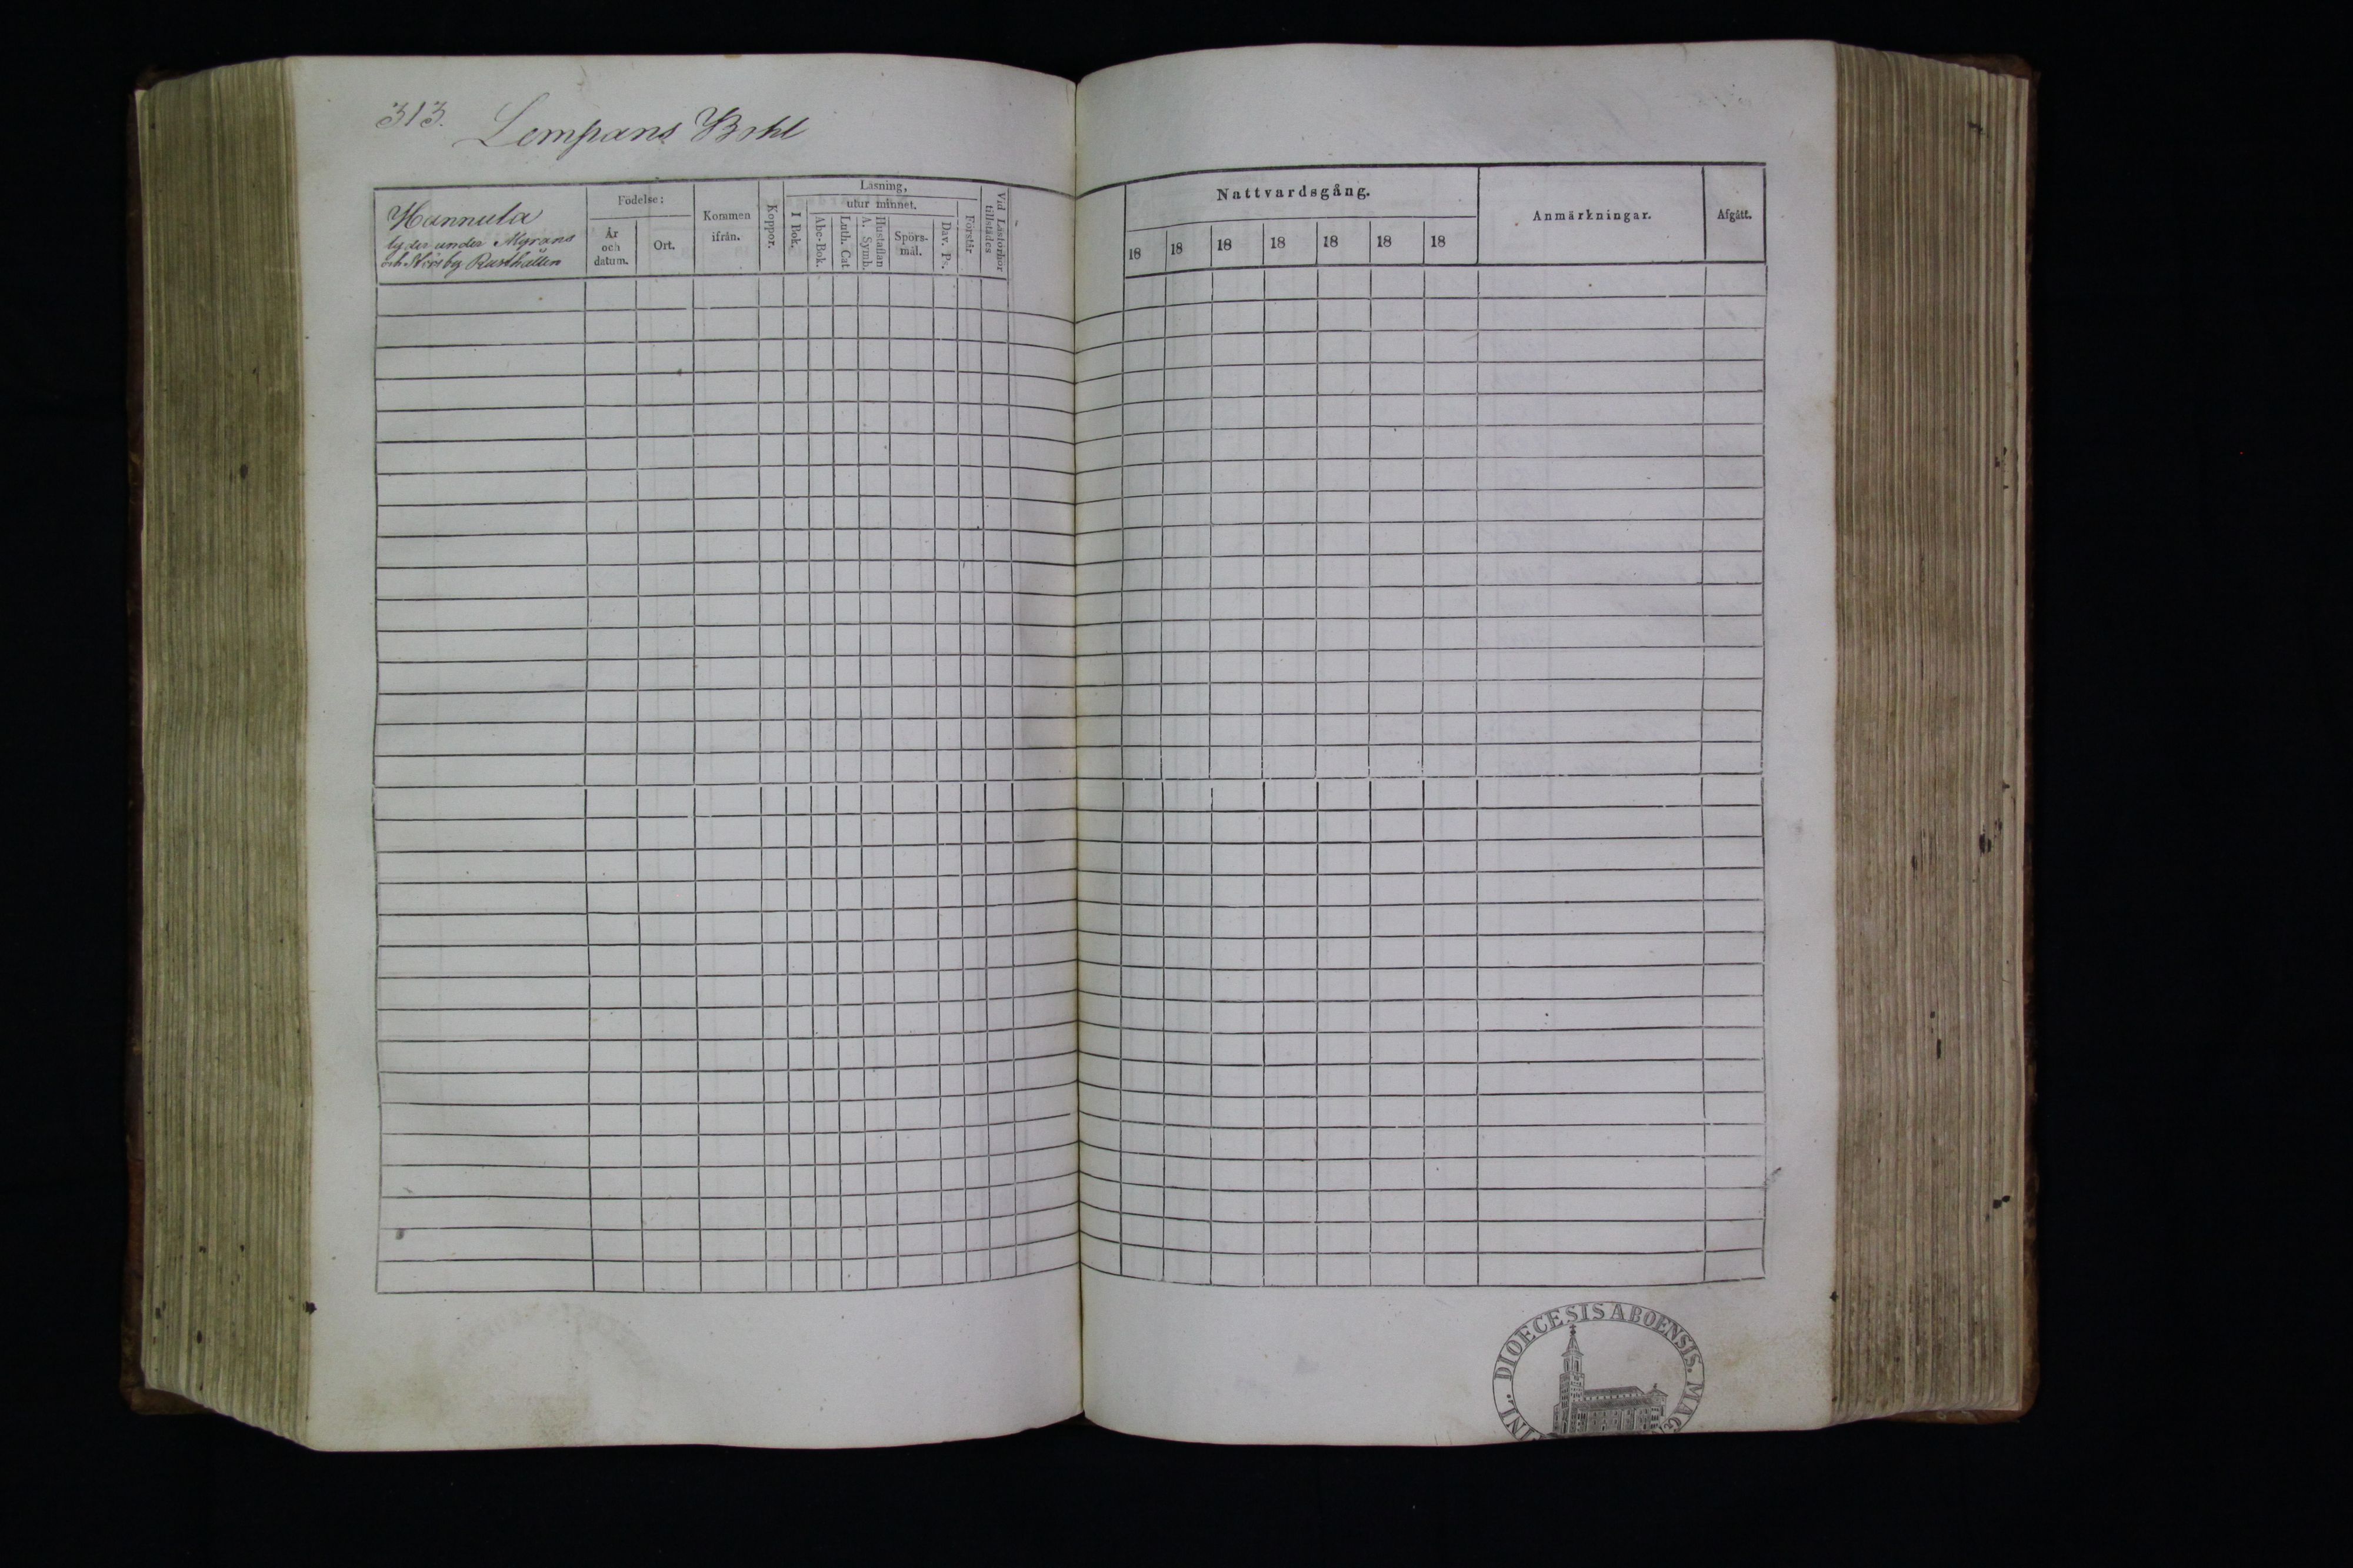 313.
Lempans Bohl
Hannula
lyder under Myråns
och Nörby Rusthållen
Födelse:
År
och
datum.
Ort.
Kommen
ifrån.
Koppor.
Läsning,
I Bok.
utur minnet.
Abc-Bok.
Luth. Cat.
Hustaflan
A. Symb.
Spörs-
mål.
Dav. Ps.
Förstår
Vid Läsförhör
tillstädes
Nattvardsgång.
18 18 18 18 18 18 18
Anmärkningar.
Afgått.
DIOECESIS ABOENSIS. MAG
INI.